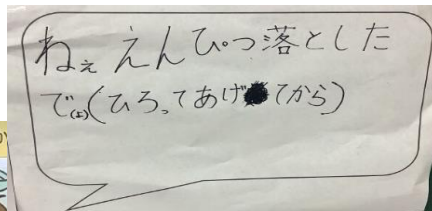 ねぇ えんぴつ落とした
で(よ)(ひろってあげてから)